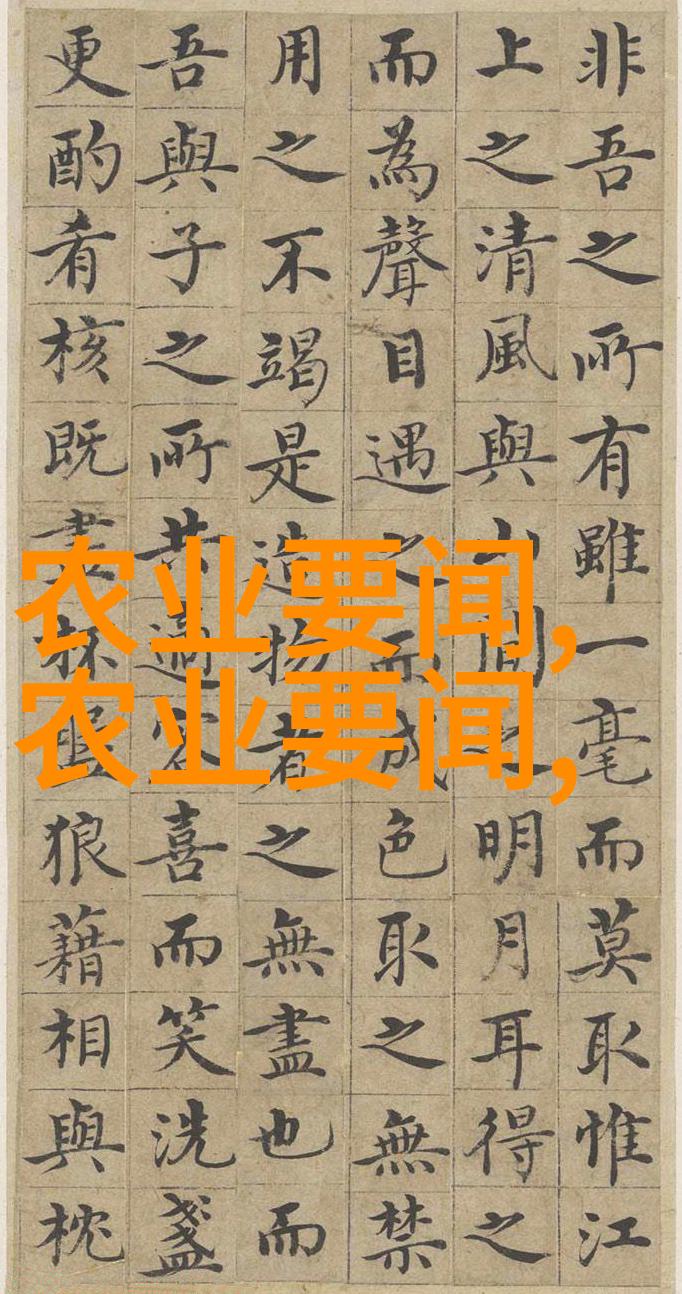 非吾之所有雖一毫而莫取惟江
上之清風與山間之明月耳得之
而為聲目遇之而成色取之無禁
用之不竭是造物者之無盡也而
吾與子之所共適客喜而笑洗盞
更酌肴核既盡杯盤狼藉相與枕
农业要闻,
农业要闻,